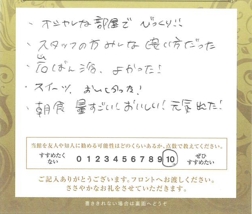 ・オシャレな部屋で びっくり!!
・スタッフの方みんな 良い方だった
・岩ばん浴、よかった!
・スイーツ、おいしかった!
・朝食 量すごい!おいしい!元気出た!
当館を友人や知人に勧める可能性はどのくらいあるか、点数で教えてください。
すすめたくない 0 1 2 3 4 5 6 7 8 9 10 ぜひすすめたい
ご記入ありがとうございます。フロントへお渡しください。
ささやかなお礼をさせていただきます。
書ききれない場合は裏面へどうぞ